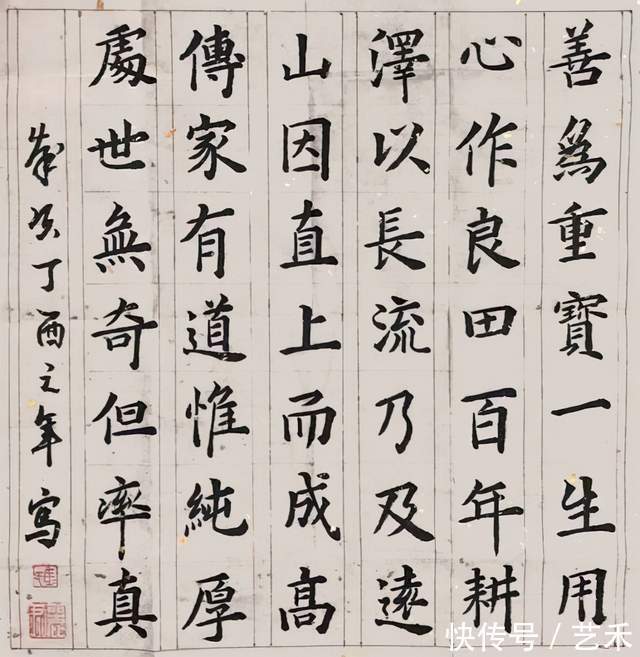 善爲重寶一生用
心作良田百年耕
澤以長流乃及遠
山因直上而成高
傳家有道惟純厚
處世無奇但率真
歲次丁酉之年寫
快传号 / 艺禾